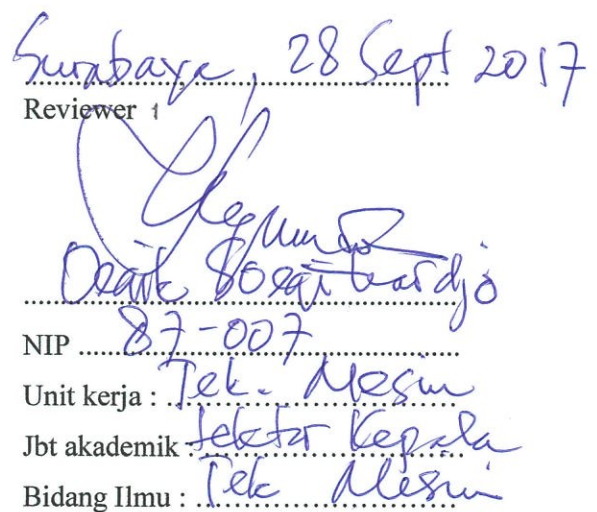 Surabaya, 28 Sept 2017
Reviewer 1
Oegik Soegihardjo
NIP 87-007
Unit kerja : Tek. Mesin
Jbt akademik Lektor Kepala
Bidang Ilmu : Tek Mesin